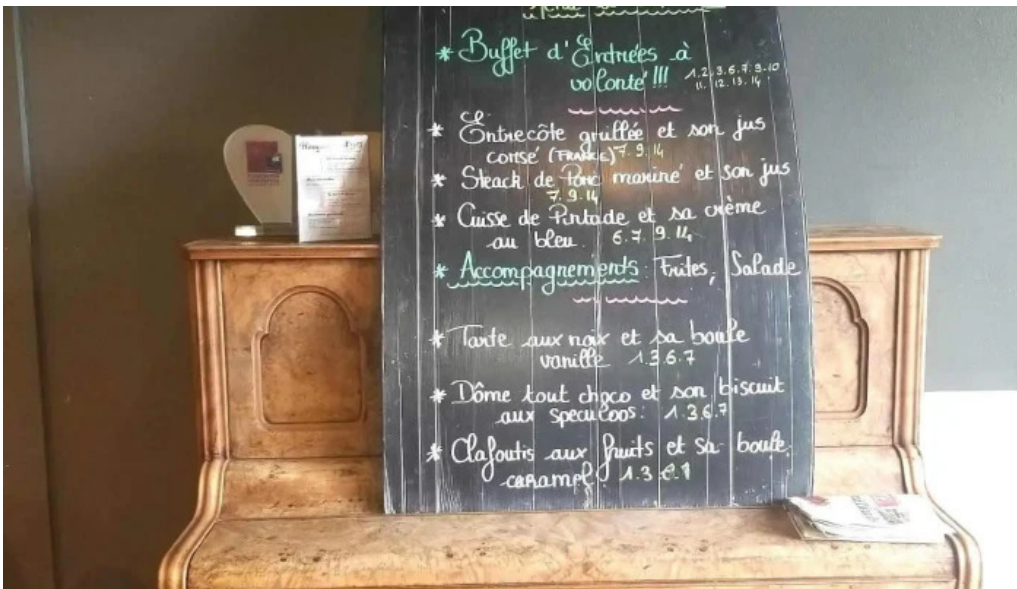 Menu
* Buffet d'Entrées à
volonté !!! 1.2.3.6.7.9.10
11.12.13.14
* Entrecôte grillée et son jus
corsé (FRANCE) 7.9.14
* Steack de Porc mariné et son jus
7.9.14
* Cuisse de Pintade et sa crème
au bleu. 6.7.9.14
* Accompagnements : Frites, Salade
* Tarte aux noix et sa boule
vanille 1.3.6.7
* Dôme tout choco et son biscuit
aux speculoos. 1.3.6.7
* Clafoutis aux fruits et sa boule
caramel. 1.3.6.7